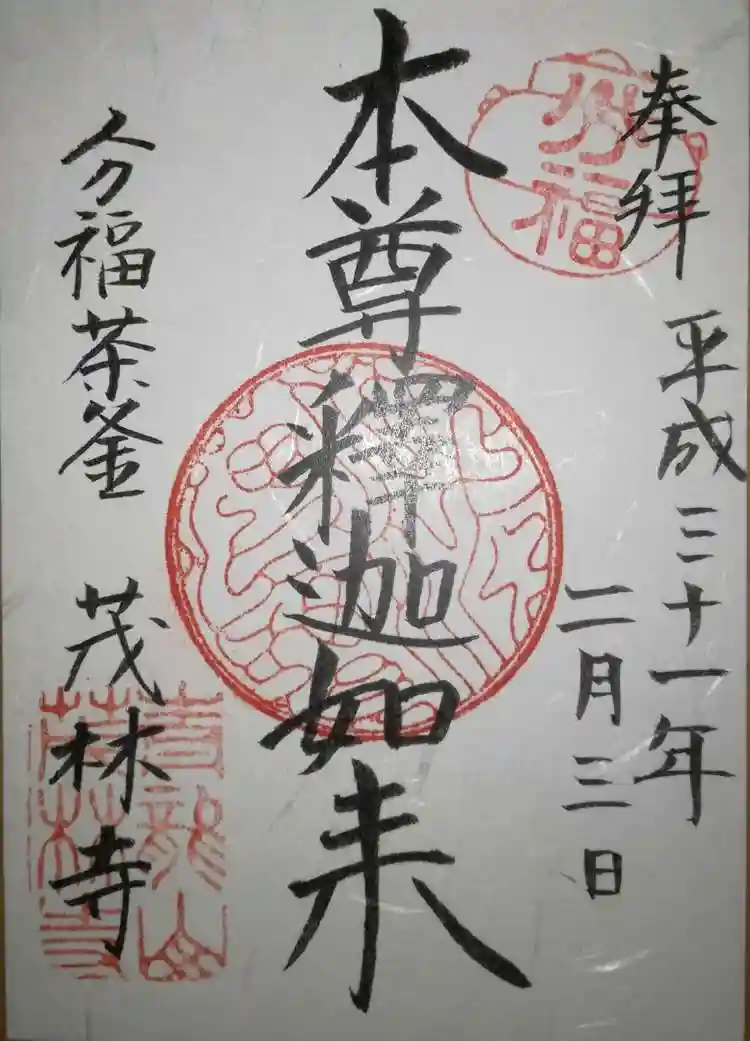 奉拝
平成三十一年
二月三日
分福
本尊釋迦如来
分福茶釜
茂林寺
青龍山
茂林寺